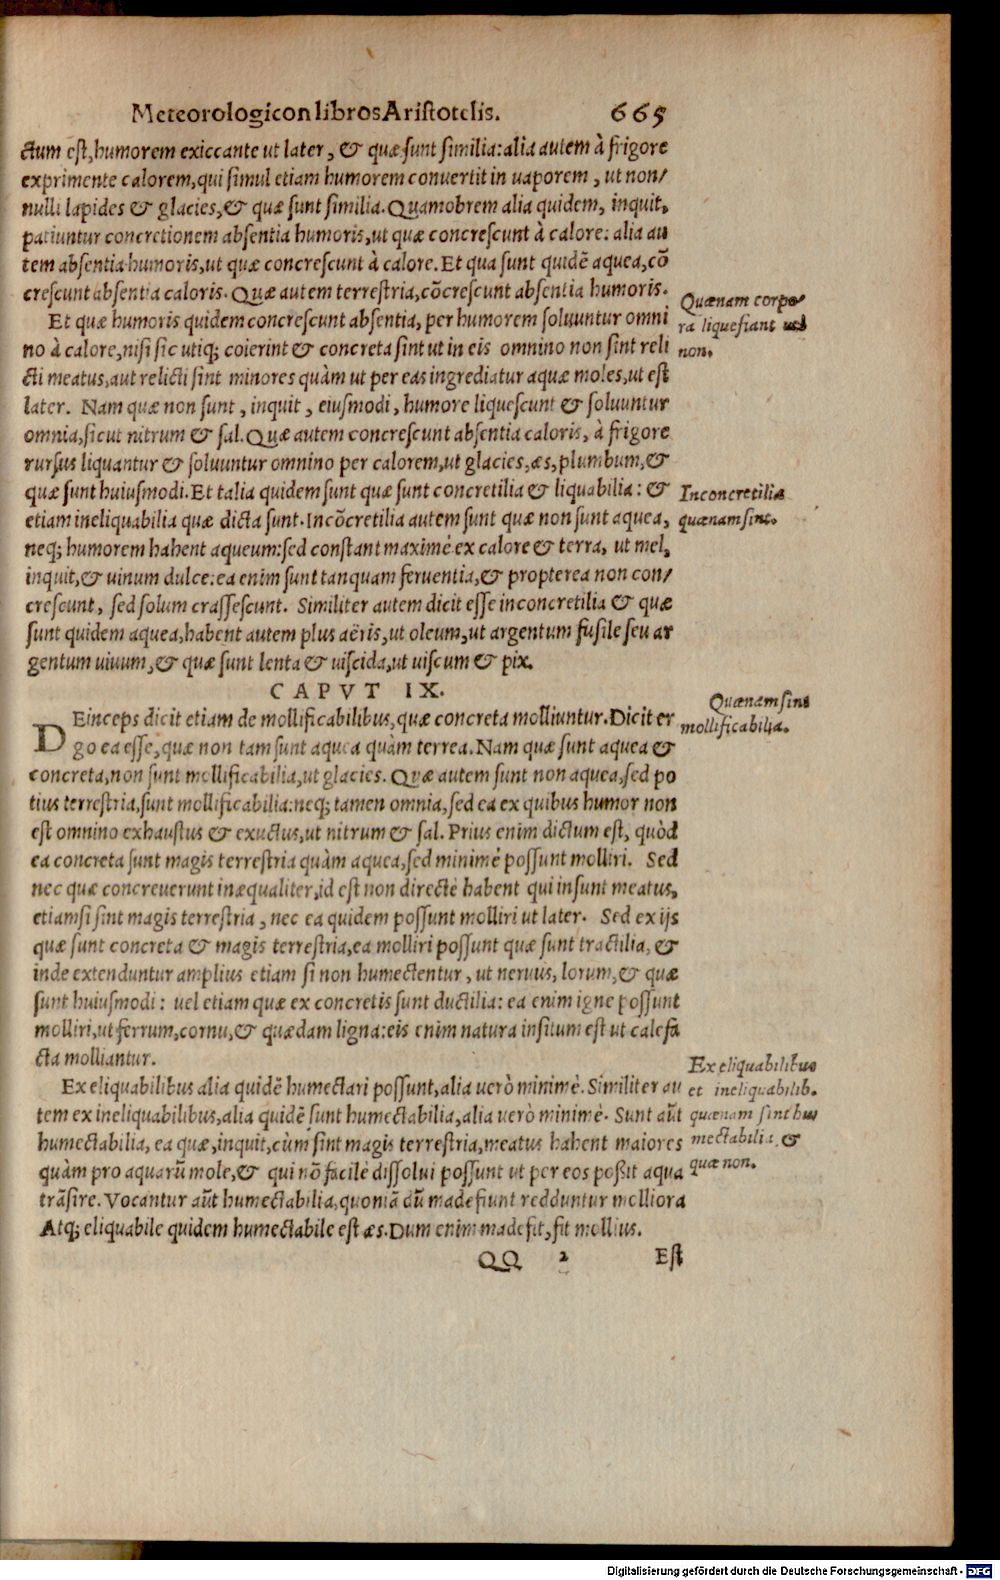 Meteorologicon libros Aristotelis. 665
ctum est, humorem exiccante ut later, & quæ sunt similia: alia autem à frigore
exprimente calorem, qui simul etiam humorem convertit in uaporem, ut non/
nulli lapides & glacies, & quæ sunt similia. Quamobrem alia quidem, inquit,
patiuntur concretionem absentia humoris, ut quæ concrescunt à calore: alia au
tem absentia humoris, ut quæ concrescunt à calore. Et qua sunt quidẽ aquea, cõ
crescunt absentia caloris. Quæ autem terrestria, cõcrescunt absentia humoris.
Quænam corpo/
ra liquefiant uel
non.
Et quæ humoris quidem concrescunt absentia, per humorem soluuntur omni
no à calore, nisi sic utiq; coierint & concreta sint ut in eis omnino non sint reli
cti meatus, aut relicti sint minores quàm ut per eas ingrediatur aquæ moles, ut est
later. Nam quæ non sunt, inquit, eiusmodi, humore liquescunt & soluuntur
omnia, sicut nitrum & sal. Quæ autem concrescunt absentia caloris, à frigore
rursus liquantur & soluuntur omnino per calorem, ut glacies, æs, plumbum, &
quæ sunt huiusmodi. Et talia quidem sunt quæ sunt concretilia & liquabilia: &
Inconcretilia
quænam sint.
etiam ineliquabilia quæ dicta sunt. Incõcretilia autem sunt quæ non sunt aquea,
neq; humorem habent aqueum: sed constant maximè ex calore & terra, ut mel,
inquit, & uinum dulce: ea enim sunt tanquam feruentia, & propterea non con/
crescunt, sed solum crassescunt. Similiter autem dicit esse inconcretilia & quæ
sunt quidem aquea, habent autem plus aëris, ut oleum, ut argentum fusile seu ar
gentum uiuum, & quæ sunt lenta & uiscida, ut uiscum & pix.
CAPVT IX.
Quænam sint
mollificabilia.
DEinceps dicit etiam de mollificabilibus, quæ concreta molliuntur. Dicit er
go ea esse, quæ non tam sunt aquea quàm terrea. Nam quæ sunt aquea &
concreta, non sunt mollificabilia, ut glacies. Quæ autem sunt non aquea, sed po
tius terrestria, sunt mollificabilia: neq; tamen omnia, sed ea ex quibus humor non
est omnino exhaustus & exuctus, ut nitrum & sal. Prius enim dictum est, quòd
ea concreta sunt magis terrestria quàm aquea, sed minimè possunt molliri. Sed
nec quæ concreuerunt inæqualiter, id est non directè habent qui insunt meatus,
etiamsi sint magis terrestria, nec ea quidem possunt molliri ut later. Sed ex ijs
quæ sunt concreta & magis terrestria, ea molliri possunt quæ sunt tractilia, &
inde extenduntur amplius etiam si non humectentur, ut neruus, lorum, & quæ
sunt huiusmodi: uel etiam quæ ex concretis sunt ductilia: ea enim igne possunt
molliri, ut ferrum, cornu, & quædam ligna: eis enim natura insitum est ut calefa
cta molliantur.
Ex eliquabilibus
et ineliquabilib.
quænam sint hu
mectabilia, &
quæ non.
Ex eliquabilibus alia quidẽ humectari possunt, alia uerò minimè. Similiter au
tem ex ineliquabilibus, alia quidẽ sunt humectabilia, alia uerò minimè. Sunt aũt
humectabilia, ea quæ, inquit, cùm sint magis terrestria, meatus habent maiores
quàm pro aquarũ mole, & qui nõ facilè dissolui possunt ut per eos poßit aqua
trãsire. Vocantur aũt humectabilia, quoniã dũ madefiunt redduntur molliora
Atq; eliquabile quidem humectabile est æs. Dum enim madefit, fit mollius.
QQ 2 Est
Digitalisierung gefördert durch die Deutsche Forschungsgemeinschaft - DFG